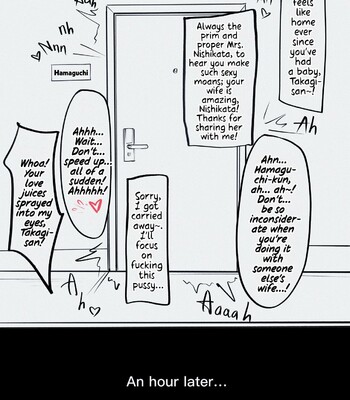 feels
like
home
ever
since
you've
had
a baby,
Takagi-
san~?
Always the
prim and
proper Mrs.
Nishikata, to
hear you make
such sexy
moans; your
wife is
amazing,
Nishikata!
Thanks for
sharing her
with me!
nh
Nnn
Hamaguchi
Ah
Ahn...
Hamagu-
chi-kun,
ah... ah~!
Don't...
be so
inconsider-
ate when
you're
doing it
with
someone
else's
wife...!
Ahhh...
Wait...
Don't...
speed up...
all of a
sudden!
Ahhhhh!
Whoa!
Your
love
juices
sprayed
into my
eyes,
Takagi-
san?
Sorry,
I got
carried
away~.
I'll
focus
on
fucking
this
pussy...
Ah
Aaaah
An hour later...